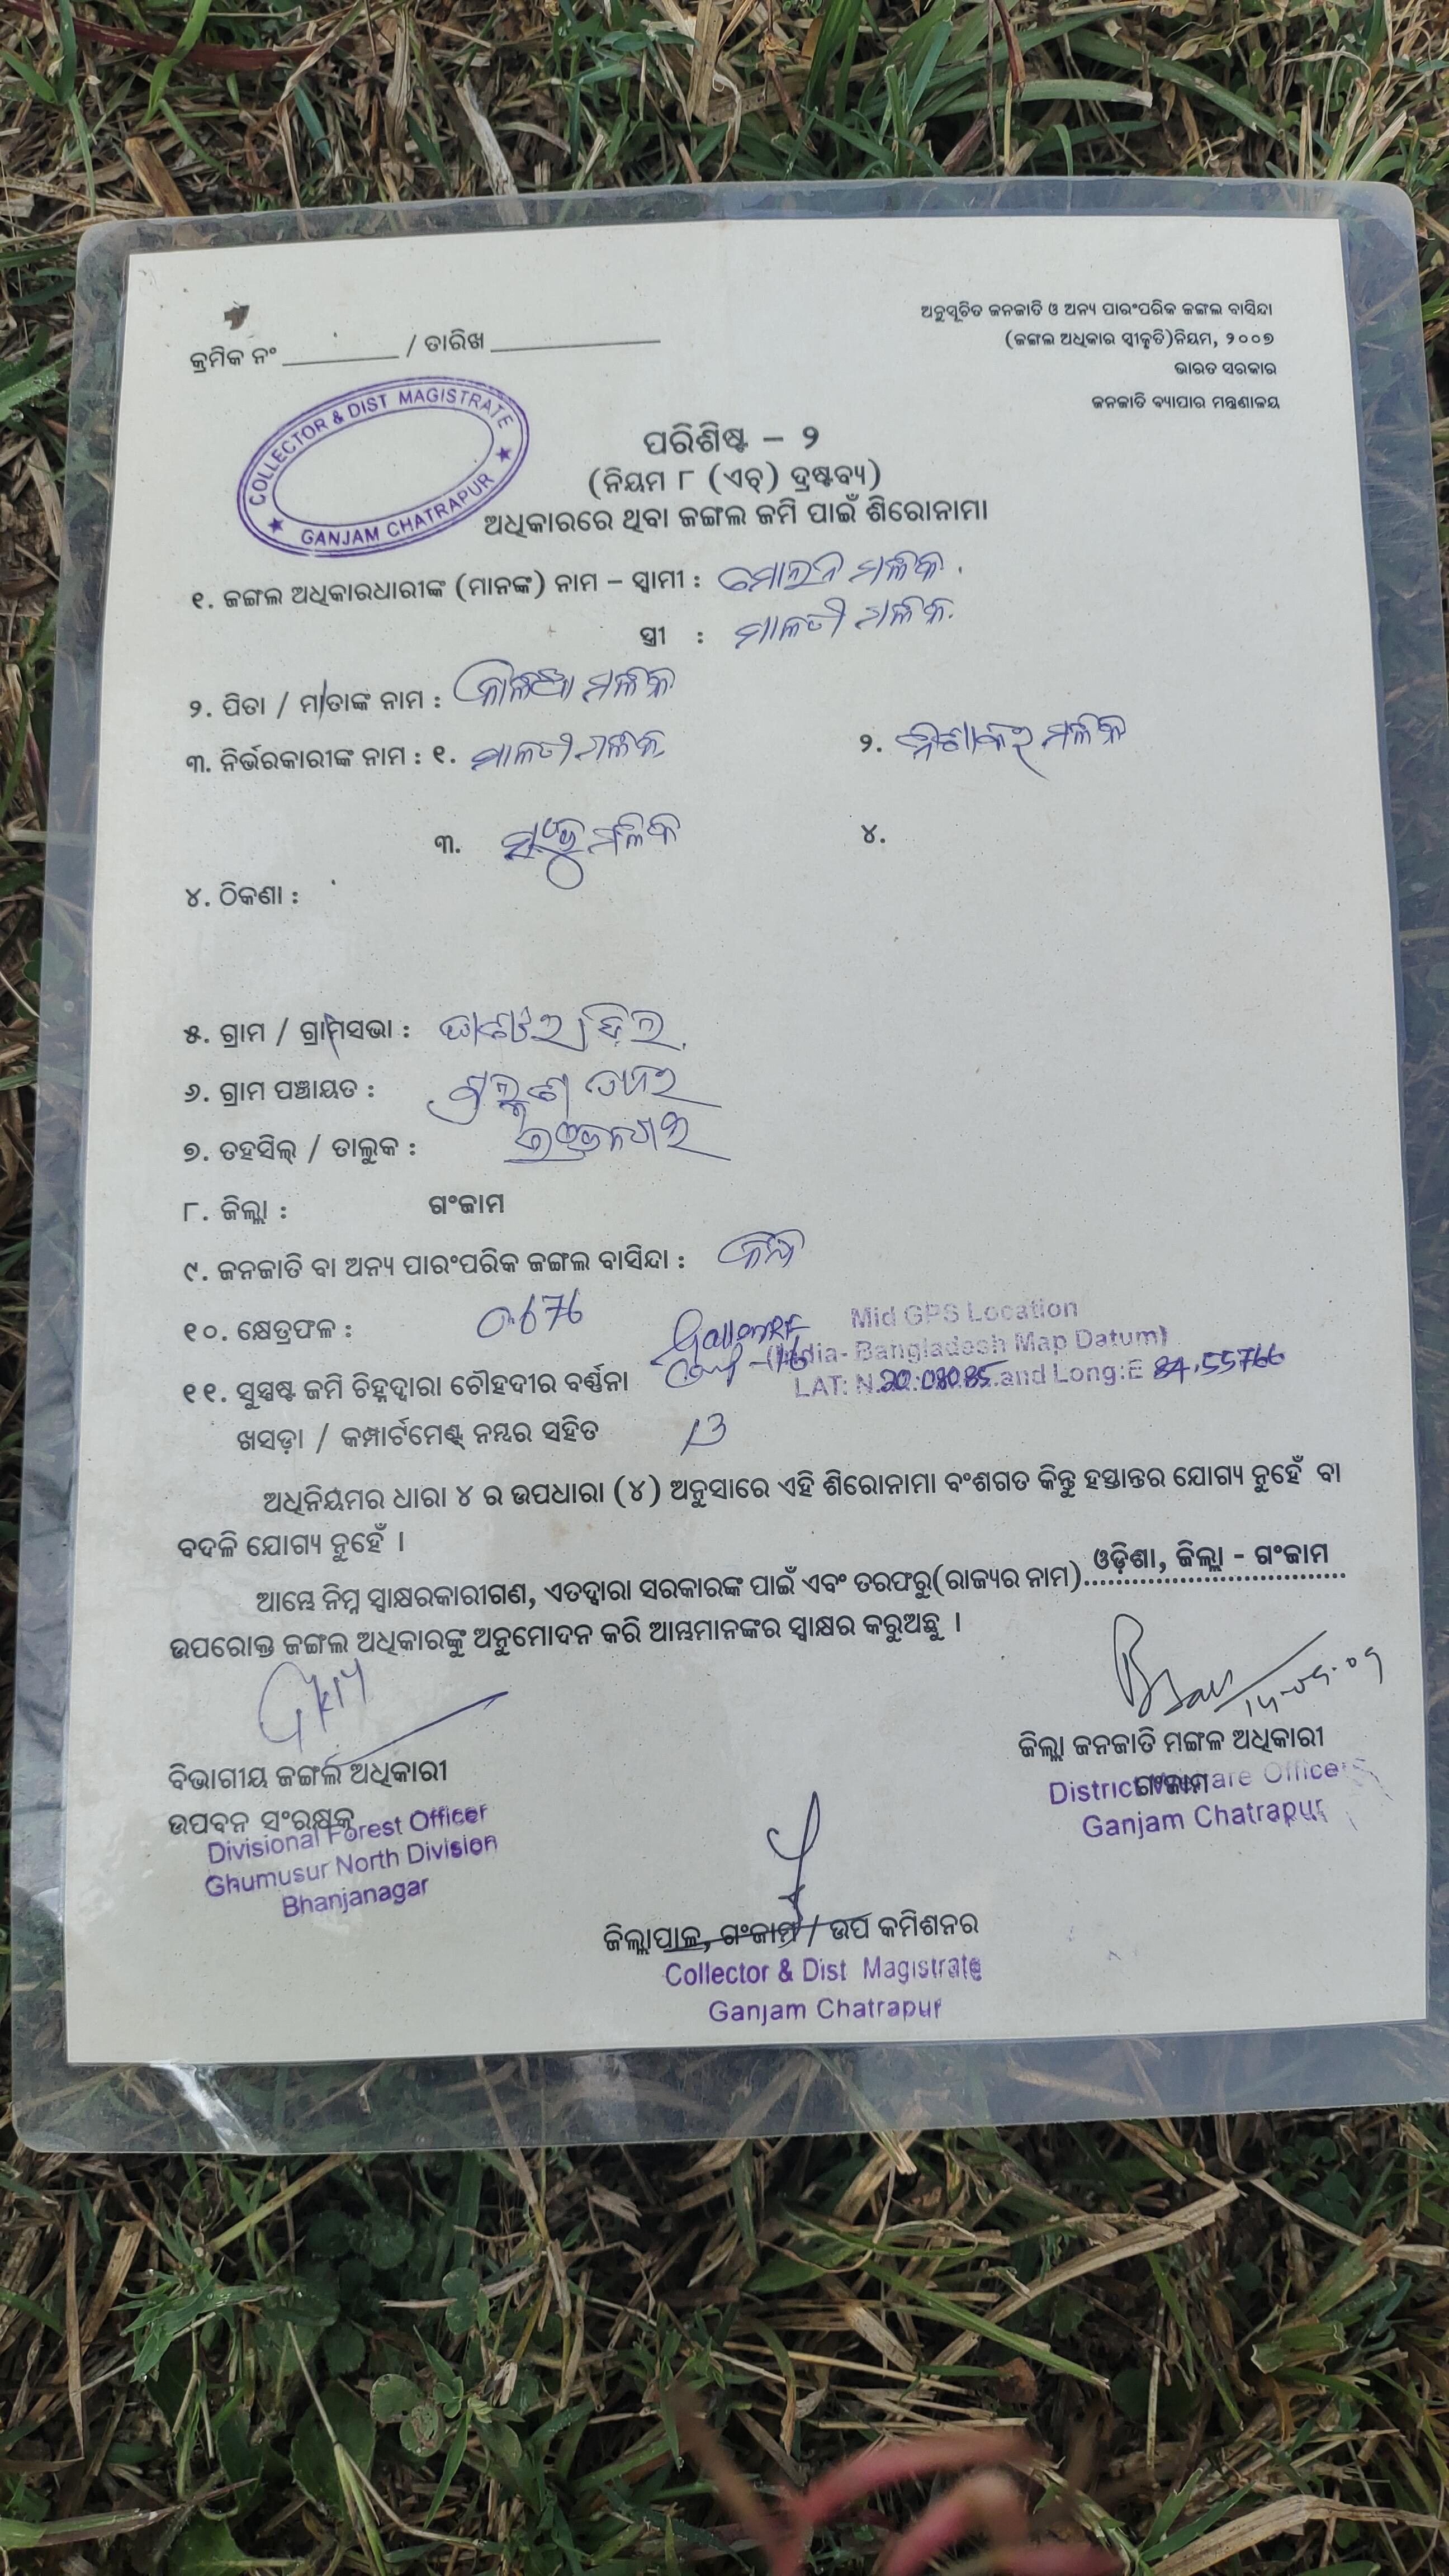 ଅନୁସୂଚିତ ଜନଜାତି ଓ ଅନ୍ୟ ପାରଂପରିକ ଜଙ୍ଗଲ ବାସିନ୍ଦା
(ଜଙ୍ଗଲ ଅଧିକାର ସ୍ଵୀକୃତି)ନିୟମ, ୨୦୦୭
ଭାରତ ସରକାର
ଜନଜାତି ବ୍ୟାପାର ମନ୍ତ୍ରଣାଳୟ
କ୍ରମିକ ନଂ / ତାରିଖ
COLLECTOR & DIST MAGISTRATE
GANJAM CHATRAPUR
ପରିଶିଷ୍ଟ – ୨
(ନିୟମ ୮ (ଏଚ୍) ଦ୍ରଷ୍ଟବ୍ୟ)
ଅଧିକାରରେ ଥିବା ଜଙ୍ଗଲ ଜମି ପାଇଁ ଶିରୋନାମା
୧. ଜଙ୍ଗଲ ଅଧିକାରଧାରୀଙ୍କ (ମାନଙ୍କ) ନାମ – ସ୍ଵାମୀ : ମଳିକ
ସ୍ତ୍ରୀ : ମାଳତୀ ମଳିକ
୨. ପିତା / ମାତାଙ୍କ ନାମ : ମଳିକ
୩. ନିର୍ଭରକାରୀଙ୍କ ନାମ : ୧. ମାଳତୀ ମଳିକ ୨. ମଳିକ
୩. ମଳିକ ୪.
୪. ଠିକଣା :
୫. ଗ୍ରାମ / ଗ୍ରାମସଭା :
୬. ଗ୍ରାମ ପଞ୍ଚାୟତ :
୭. ତହସିଲ୍ / ତାଲୁକ :
୮. ଜିଲ୍ଲା : ଗଂଜାମ
୯. ଜନଜାତି ବା ଅନ୍ୟ ପାରଂପରିକ ଜଙ୍ଗଲ ବାସିନ୍ଦା :
୧୦. କ୍ଷେତ୍ରଫଳ : 0.676
Mid GPS Location
(India- Bangladesh Map Datum)
LAT: N 20.08085 and Long:E 84.55766
୧୧. ସୁସ୍ପଷ୍ଟ ଜମି ଚିହ୍ନଦ୍ଵାରା ଚୌହଦୀର ବର୍ଣ୍ଣନା
ଖସଡ଼ା / କମ୍ପାର୍ଟମେଣ୍ଟ୍ ନମ୍ବର ସହିତ 13
ଅଧିନିୟମର ଧାରା ୪ ର ଉପଧାରା (୪) ଅନୁସାରେ ଏହି ଶିରୋନାମା ବଂଶଗତ କିନ୍ତୁ ହସ୍ତାନ୍ତର ଯୋଗ୍ୟ ନୁହେଁ ବା
ବଦଳି ଯୋଗ୍ୟ ନୁହେଁ ।
ଆମ୍ଭେ ନିମ୍ନ ସ୍ଵାକ୍ଷରକାରୀଗଣ, ଏତଦ୍ଵାରା ସରକାରଙ୍କ ପାଇଁ ଏବଂ ତରଫରୁ(ରାଜ୍ୟର ନାମ) ଓଡ଼ିଶା, ଜିଲ୍ଲା - ଗଂଜାମ
ଉପରୋକ୍ତ ଜଙ୍ଗଲ ଅଧିକାରଙ୍କୁ ଅନୁମୋଦନ କରି ଆମ୍ଭମାନଙ୍କର ସ୍ଵାକ୍ଷର କରୁଅଛୁ ।
ବିଭାଗୀୟ ଜଙ୍ଗଲ ଅଧିକାରୀ
ଉପବନ ସଂରକ୍ଷକ
Divisional Forest Officer
Ghumusur North Division
Bhanjanagar
ଜିଲ୍ଲା ଜନଜାତି ମଙ୍ଗଳ ଅଧିକାରୀ
ଗଂଜାମ
District Welfare Officer
Ganjam Chatrapur
ଜିଲ୍ଲାପାଳ, ଗଂଜାମ / ଉପ କମିଶନର
Collector & Dist Magistrate
Ganjam Chatrapur